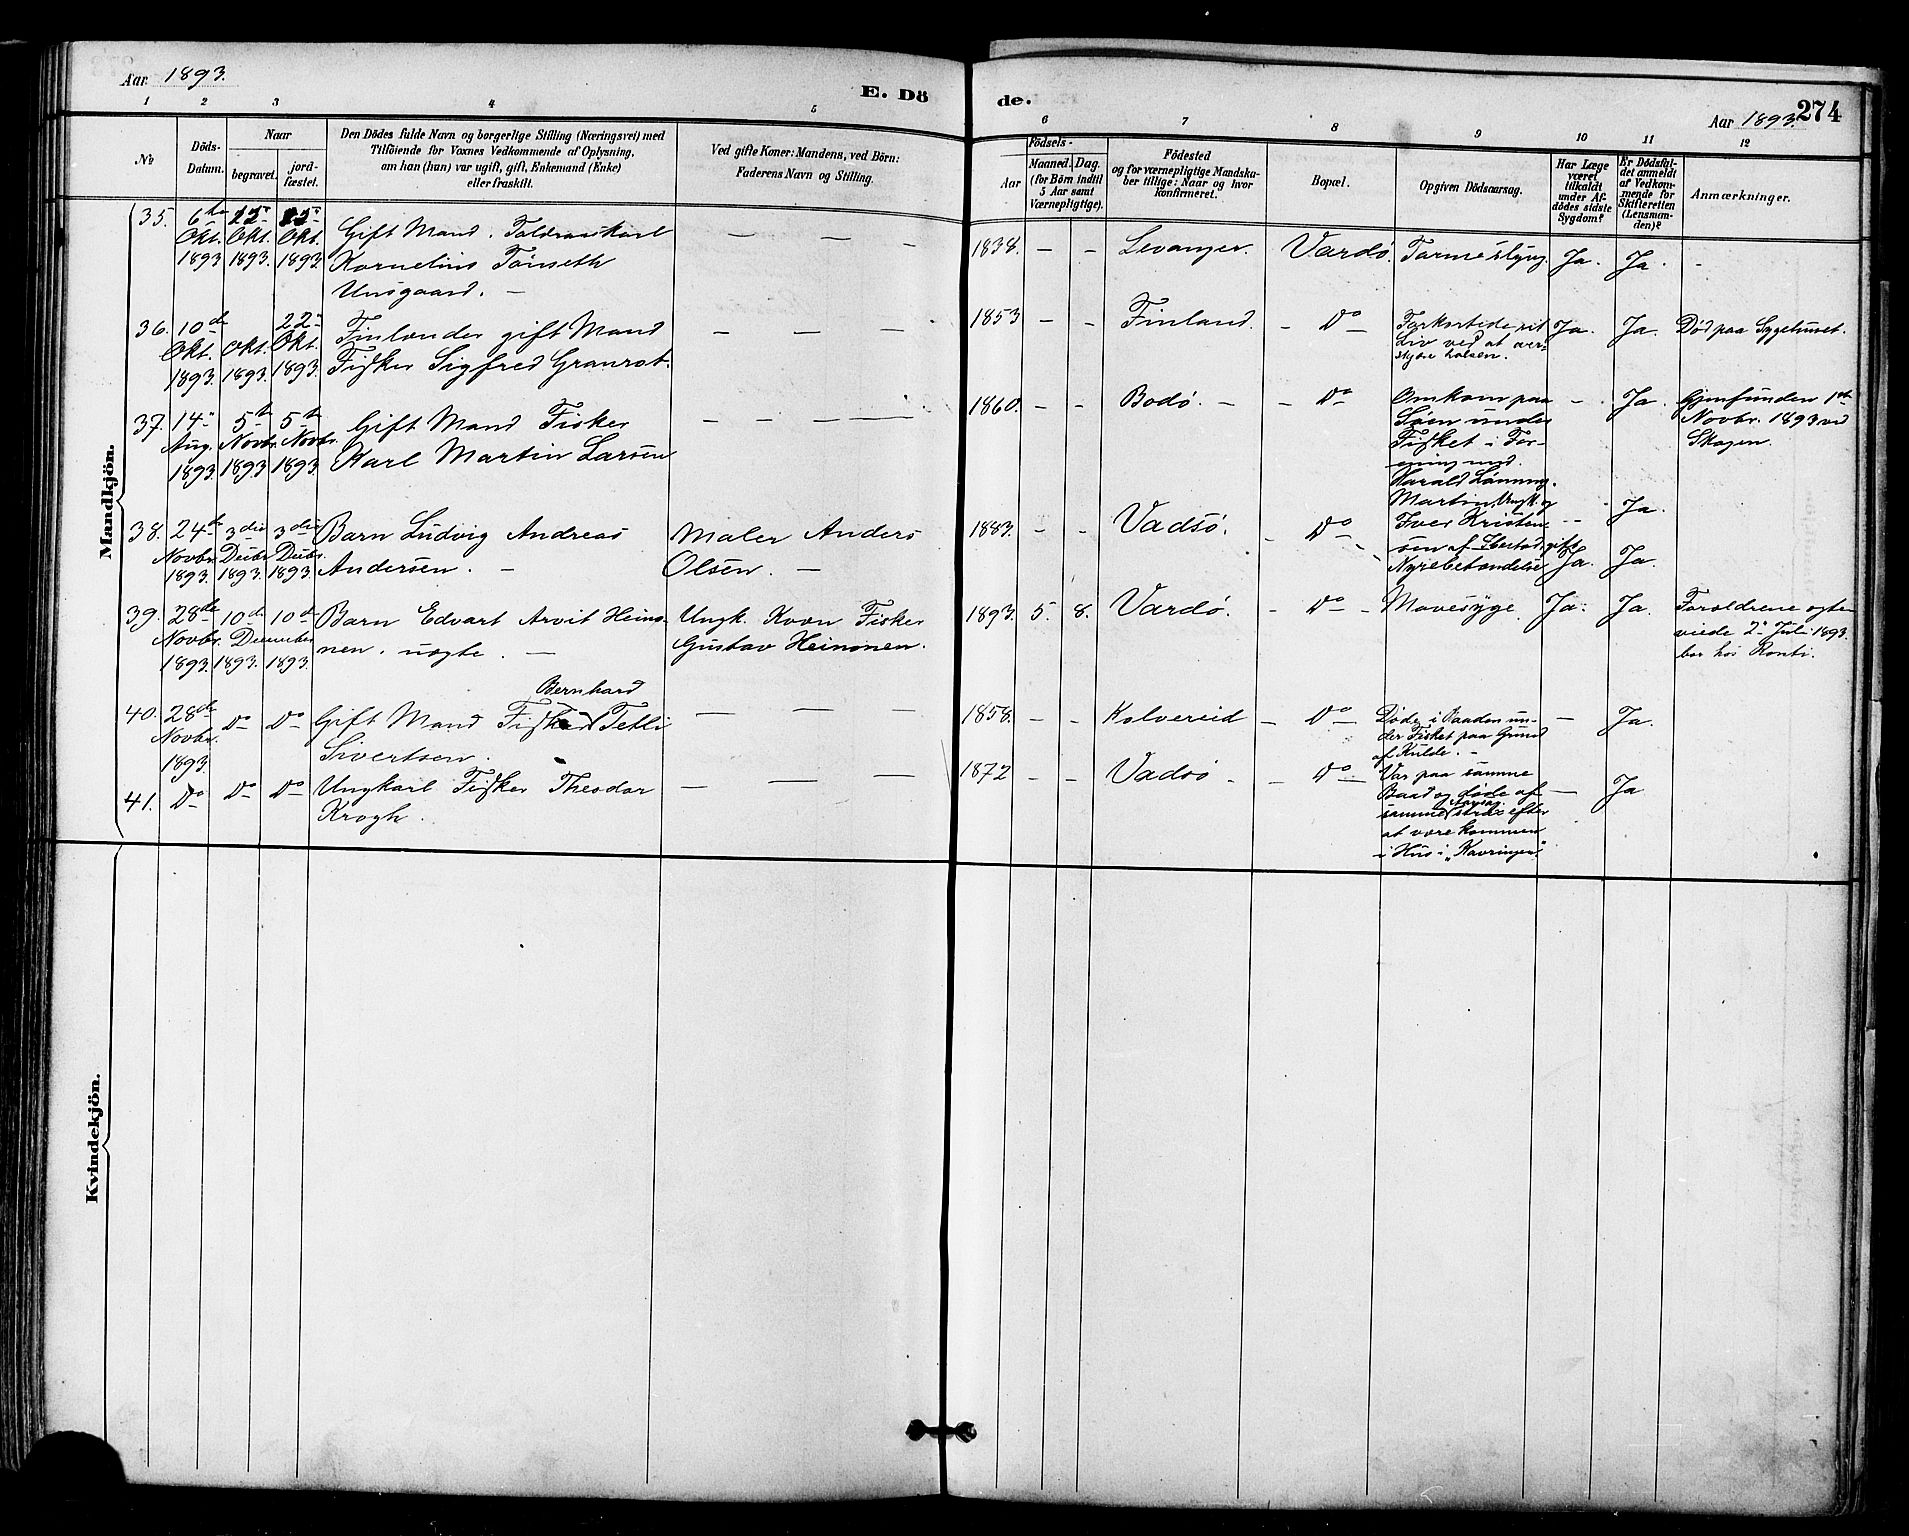 Aar 1893.
E. Dö
1 2 3 4 5
№
Döds-
Datum.
Naar
begravet.
jord-
fæstet.
Den Dödes fulde Navn og borgerlige Stilling (Næringsvei) med
Tilföiende for Voxnes Vedkommende af Oplysning,
om han (hun) var ugift, gift, Enkemand (Enke)
eller fraskilt.
Ved gifte Koner: Mandens, ved Börn:
Faderens Navn og Stilling.
Mandkjön.
35. 6te Okt. 1893 Okt. 1893. Okt. 1893.
Gift Mand.
Kornelius Tönseth
Unsgaard. —
36. 10de Okt. 1893. Okt. 1893. 22 Okt. 1893.
Finlænder gift Mand
Fisker Sigfred Granrot.
37. 14 Aug. 1893. 5te Novbr. 1893 5te Novbr. 1893.
Gift Mand Fisker
Karl Martin Larsen
38. 24de Novbr. 1893. 3die Decbr. 1893. 3die Decbr. 1893.
Barn Ludvig Andreas
Andersen. —
Maler Anders
Olsen. —
39. 28de Novbr. 1893. 10de December 1893. 10de 1893.
Barn Edvart Arvit Heino-
nen. uægte. —
Ungk. Kvæn Fisker
Gustav Heinonen.
40. 28de Novbr. 1893. Do Do
Bernhard
Gift Mand Fisker Tetli
Sivertsen.
41. Do Do Do
Ungkarl Fisker Theodor
Krogh.
Kvindekjön.
de.
Aar 1893. 274
6 7 8 9 10 11 12
Födsels-
Aar
Maaned. Dag.
(for Börn indtil
5 Aar samt
Værnepligtige).
Födested
og for værnepligtige Mandska-
ber tillige: Naar og hvor
konfirmeret.
Bopæl.
Opgiven Dödsaarsag.
Har Læge
været
tilkaldt
under Af-
dödes sidste
Sygdom?
Er Dödsfal-
det anmeldt
af Vedkom-
mende for
Skifteretten
(Lensman-
den)?
Anmærkninger.
1838. — - Levanger. Vardø. Ja. Ja. -
1853 — - Finland. — Do — Forkortede sit Ja. Ja. Død paa Sygehuset.
Liv ved at over-
skjære halsen.
1860. — - Bodø. — — Do Omkom paa — - Ja. Gjenfunden 1ste
Søen under Novbr. 1893 ved
Fisket i For- Skagen.
ening med
Harald Lønning,
Martin Ungk. og
1883. — - Vadsø. — Do Iver Kristen- -- Ja.
sen af gift
Nyrebetændelse Ja. Ja.
1893. 5. 8. Vardø. — Do — Mavesyge. Ja. Ja. Forældrene ægte-
viede 2 Juli 1893.
bor hos Ronti.
1858. — - Kolvereid — Do — Døde i Baaden un- — Ja.
der Fisket paa Grund
af Kulde. —
1872 — - Vadsø — — Do — Var paa samme
Baad og døde af — Ja
samme Aarsag strax efter
at være kommen
i Hus i „Kavringen“